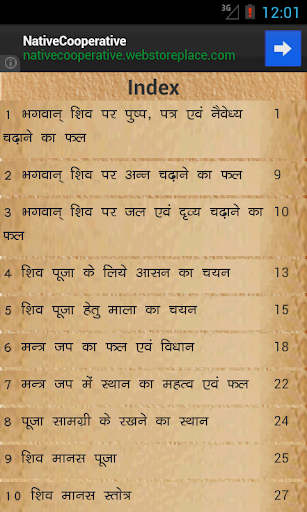 3G 12:01
NativeCooperative
nativecooperative.webstoreplace.com
Index
1 भगवान् शिव पर पुष्प, पत्र एवं नैवेध्य 1
चढ़ाने का फल
2 भगवान् शिव पर अन्न चढ़ाने का फल 9
3 भगवान् शिव पर जल एवं दृव्य चढ़ाने का 10
फल
4 शिव पूजा के लिये आसन का चयन 13
5 शिव पूजा हेतु माला का चयन 15
6 मन्त्र जप का फल एवं विधान 18
7 मन्त्र जप में स्थान का महत्व एवं फल 22
8 पूजा सामग्री के रखने का स्थान 24
9 शिव मानस पूजा 25
10 शिव मानस स्तोत्र 27